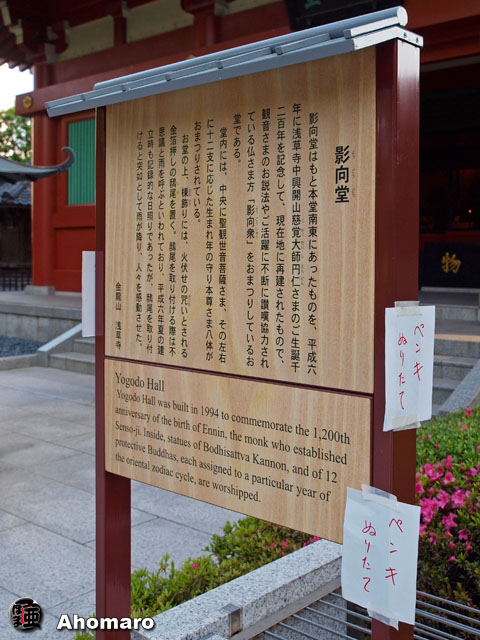 影向堂
影向堂はもと本堂南東にあったものを、平成六
年に浅草寺中興開山慈覚大師円仁さまのご生誕千
二百年を記念して、現在地に再建されたもので、
観音さまのお説法やご活躍に不断に讃嘆協力され
ている仏さま方「影向衆」をおまつりしているお
堂である。
堂内には、中央に聖観世音菩薩さま、その左右
に十二支に応じた生まれ年の守り本尊さま八体が
おまつりされている。
お堂の上、棟飾りには、火伏せの咒いとされる
金箔押しの鴟尾を置く。鴟尾を取り付ける際は不
思議と雨を呼ぶといわれており、平成六年夏の建
立時も記録的な日照りであったが、鴟尾を取り付
けると突如として雨が降り、人々を感動させた。
金龍山 浅草寺
Yogodo Hall
Yogodo Hall was built in 1994 to commemorate the 1,200th
anniversary of the birth of Ennin, the monk who established
Senso-ji. Inside, statues of Bodhisattva Kannon, and of 12
protective Buddhas, each assigned to a particular year of
the oriental zodiac cycle, are worshipped.
ペンキ
ぬりたて
ペンキ
ぬりたて
物
Ahomaro